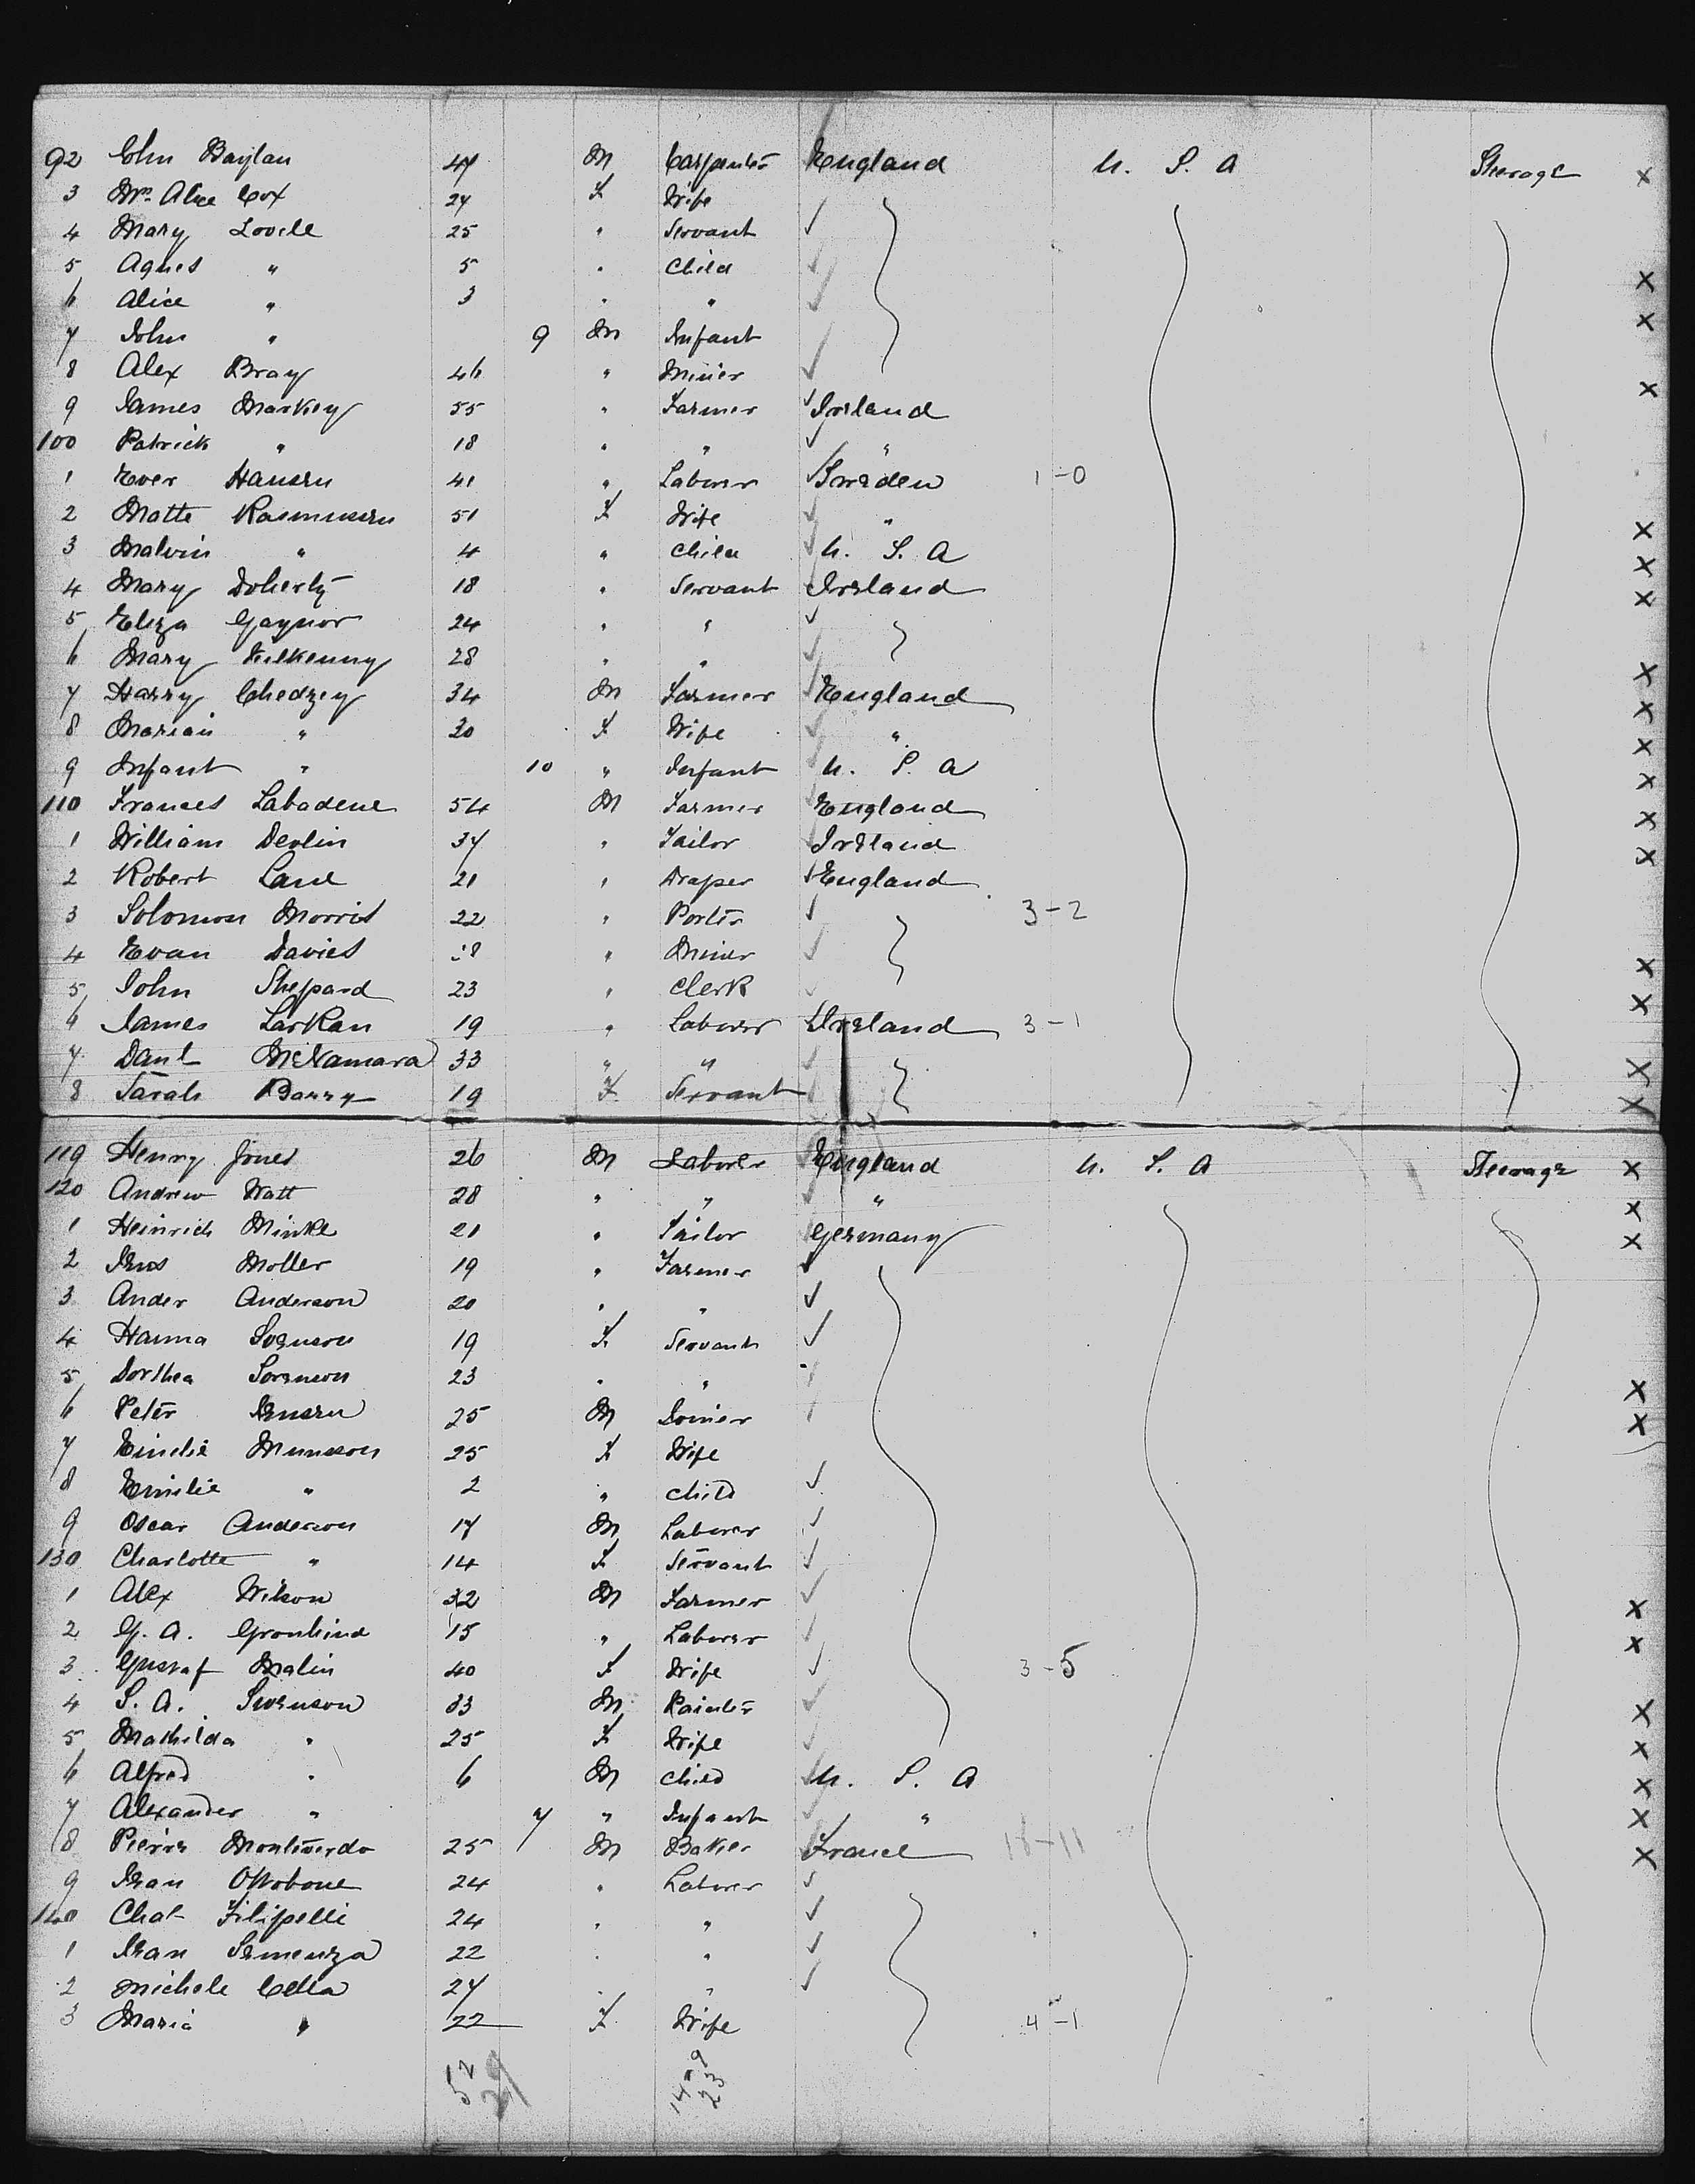 92 John Baylan 47 M Carpenter England U. S. A Steerage X
3 Mrs Alice Cox 24 F Wife
4 Mary Lovele 25 " Servant ✓
5 Agnes " 5 " Child ✓ X
6 Alice " 3 " " ✓ X
7 John " 9 M Infant
8 Alex Bray 46 " Miner ✓ X
9 James Markey 55 " Farmer ✓ Ireland
100 Patrick " 18 " " ✓ "
1 Ever Hansen 41 " Laborer ✓ Sweden 1-0
2 Matte Rasmussen 51 F Wife ✓ " X
3 Malvin " 4 " Child ✓ U. S. A X
4 Mary Doherty 18 " Servant Ireland X
5 Eliza Gaynor 24 " " ✓
6 Mary Kilkenny 28 " " ✓ X
7 Harry Chedzey 34 M Farmer ✓ England X
8 Marian " 30 F Wife ✓ " X
9 Infant " 10 " Infant U. S. A X
110 Frances Labadene 54 M Farmer England X
1 William Devlin 37 " Tailor Ireland X
2 Robert Lane 21 " Draper England
3 Solomon Morris 22 " Porter ✓ 3-2
4 Evan Davies " Miner ✓ X
5 John Shepard 23 " Clerk ✓ X
6 James Larkan 19 " Laborer Ireland 3-1
7 Danl McNamara 33 " " ✓ X
8 Sarah Barry 19 F Servant X
119 Henry Jones 26 M Laborer England U. S. A Steerage X
120 Andrew Watt 28 " " ✓ " X
1 Heinrich Minke 21 " Tailor Germany X
2 Jens Moller 19 " Farmer ✓
3 Ander Anderson 20 " " ✓
4 Hanna Svenson 19 F Servant ✓
5 Dorthea Sorenson 23 " " X
6 Peter Jensen 25 M Joiner X
7 Emelie Munsson 25 F Wife
8 Emilie " 2 " Child ✓
9 Oscar Anderson 17 M Laborer ✓
130 Charlotte " 14 F Servant ✓
1 Alex Wilson 32 M Farmer ✓ X
2 G. A. Gronlund 15 " Laborer ✓ X
3 Gustaf Malin 40 F Wife ✓ 3-5
4 S. A. Swenson 33 M Painter ✓ X
5 Mathilda " 25 F Wife ✓ X
6 Alfred " 6 M Child U. S. A X
7 Alexander " 7 " Infant ✓ " X
8 Pierre Monteverdo 25 M Baker France 18-11 X
9 Jean Ottobone 24 " Laborer ✓
140 Chas Filipelli 24 " " ✓
1 Jean Semenza 22 " " ✓
2 Michele Cella 27 " " ✓
3 Maria " 22 F Wife 4-1
52 29 14 9 23